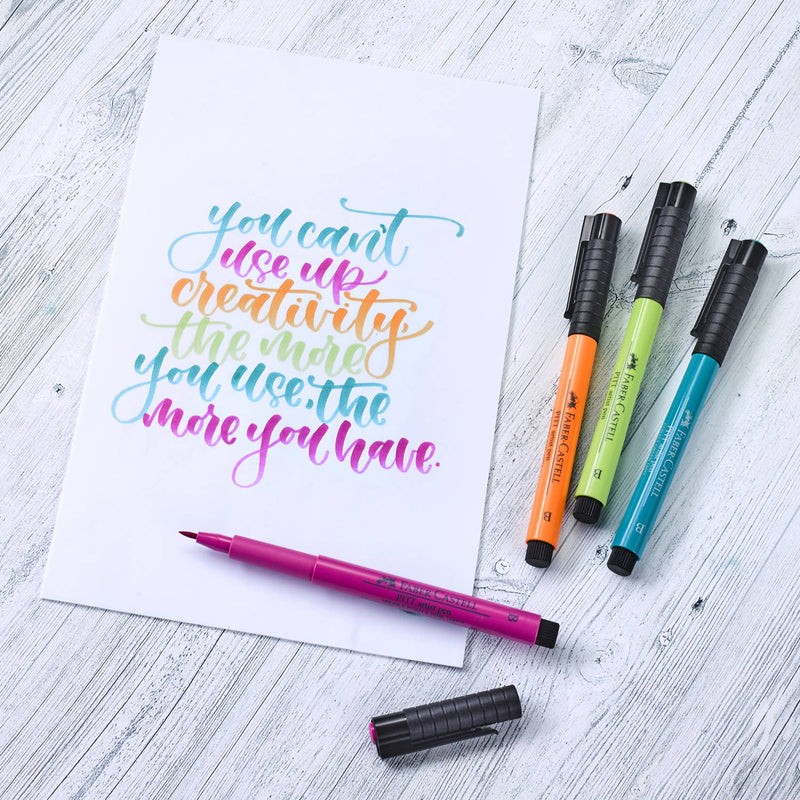 you can't
use up
creativity,
the more
you use, the
more you have.
FABER-CASTELL
PITT artist pen
B
FABER-CASTELL
PITT artist pen
B
FABER-CASTELL
PITT artist pen
B
FABER-CASTELL
PITT artist pen
B